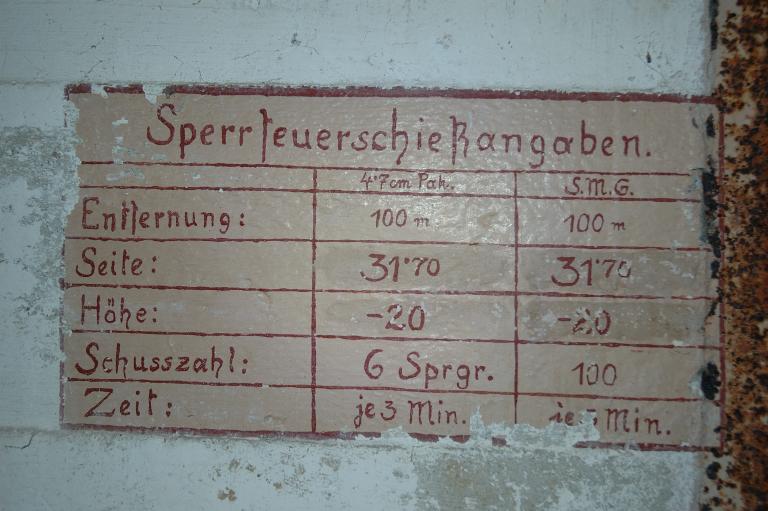 Sperrfeuerschießangaben.
4·7cm Pak. S.M.G.
Entfernung: 100 m 100 m
Seite: 31·70 31·70
Höhe: -20 -20
Schusszahl: 6 Sprgr. 100
Zeit: je 3 Min. je Min.